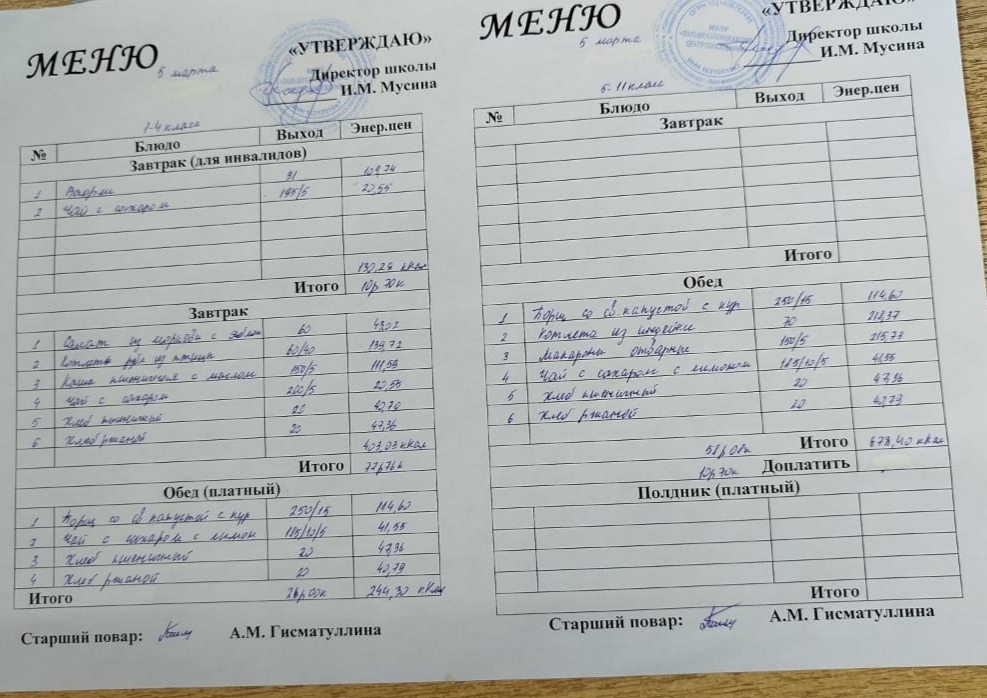 МЕНЮ
5 марта
«УТВЕРЖДАЮ»
Директор школы
И.М. Мусина
1-4 класс
№ Блюдо Выход Энер.цен
Завтрак (для инвалидов)
1 Вафли 31 109,74
2 Чай с сахаром 195/5 20,55
130,29 кКал
Итого 10р 70к
Завтрак
1 Салат из моркови с яблок 60 43,02
2 Котлеты руб. из птицы 60/40 139,72
3 Каша пшеничная с маслом 150/5 111,59
4 Чай с сахаром 200/5 20,55
5 Хлеб пшеничный 20 40,79
6 Хлеб ржаной 20 47,36
403,03 кКал
Итого 77р76к
Обед (платный)
1 Борщ со св капустой с кур 250/15 114,60
2 Чай с сахаром с лимон 185/10/5 41,55
3 Хлеб пшеничный 20 47,36
4 Хлеб ржаной 20 40,79
Итого 26р00к 244,30 кКал
Старший повар: А.М. Гисматуллина
МЕНЮ
5 марта
«УТВЕРЖДАЮ»
Директор школы
И.М. Мусина
5-11 класс
№ Блюдо Выход Энер.цен
Завтрак
Итого
Обед
1 Борщ со св. капустой с кур 250/15 114,60
2 Котлета из индейки 70 218,37
3 Макароны отварные 150/5 215,73
4 Чай с сахаром с лимоном 185/10/5 41,55
5 Хлеб пшеничный 20 47,36
6 Хлеб ржаной 20 40,79
58р00к Итого 678,40 кКал
10р70к Доплатить
Полдник (платный)
Итого
Старший повар: А.М. Гисматуллина